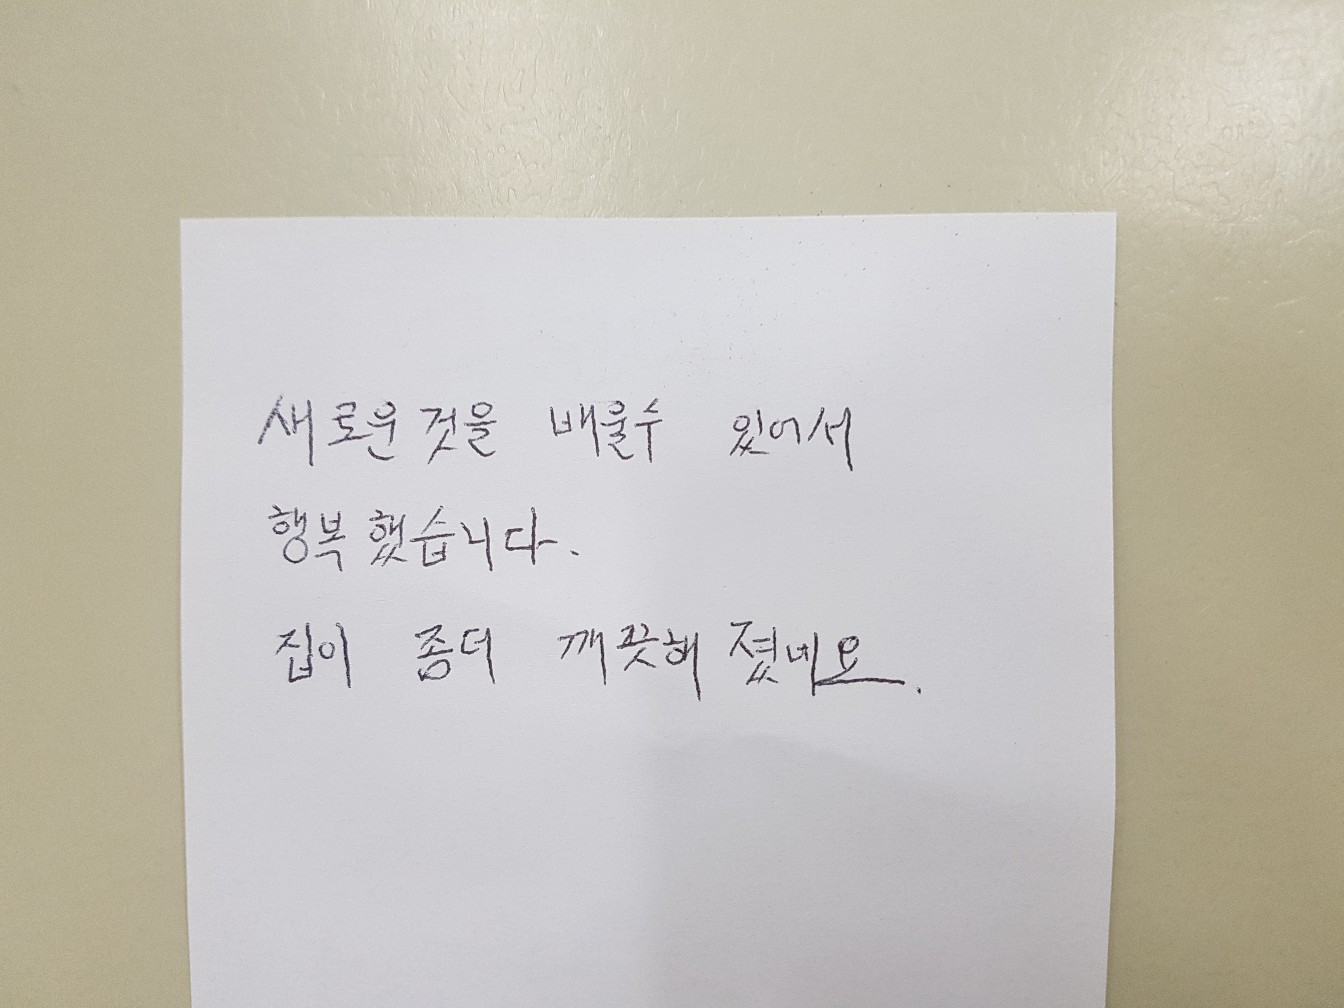 새로운 것을 배울수 있어서
행복했습니다.
집이 좀더 깨끗해 졌네요.